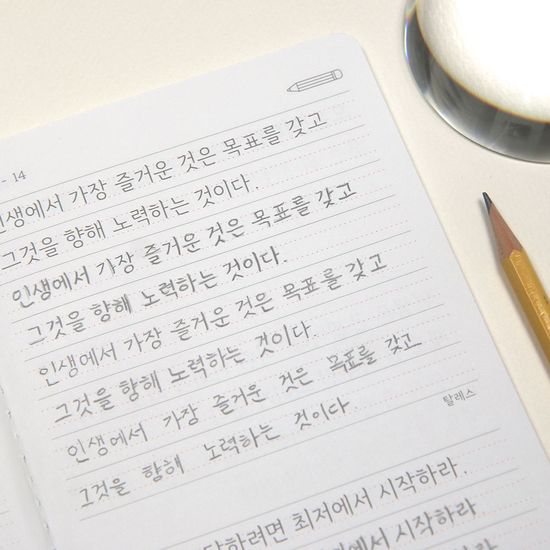 - 14
인생에서 가장 즐거운 것은 목표를 갖고
그것을 향해 노력하는 것이다.
인생에서 가장 즐거운 것은 목표를 갖고
그것을 향해 노력하는 것이다.
인생에서 가장 즐거운 것은 목표를 갖고
그것을 향해 노력하는 것이다.
인생에서 가장 즐거운 것은 목표를 갖고
그것을 향해 노력하는 것이다.
탈레스
당하려면 최저에서 시작하라.
에서 시작하라